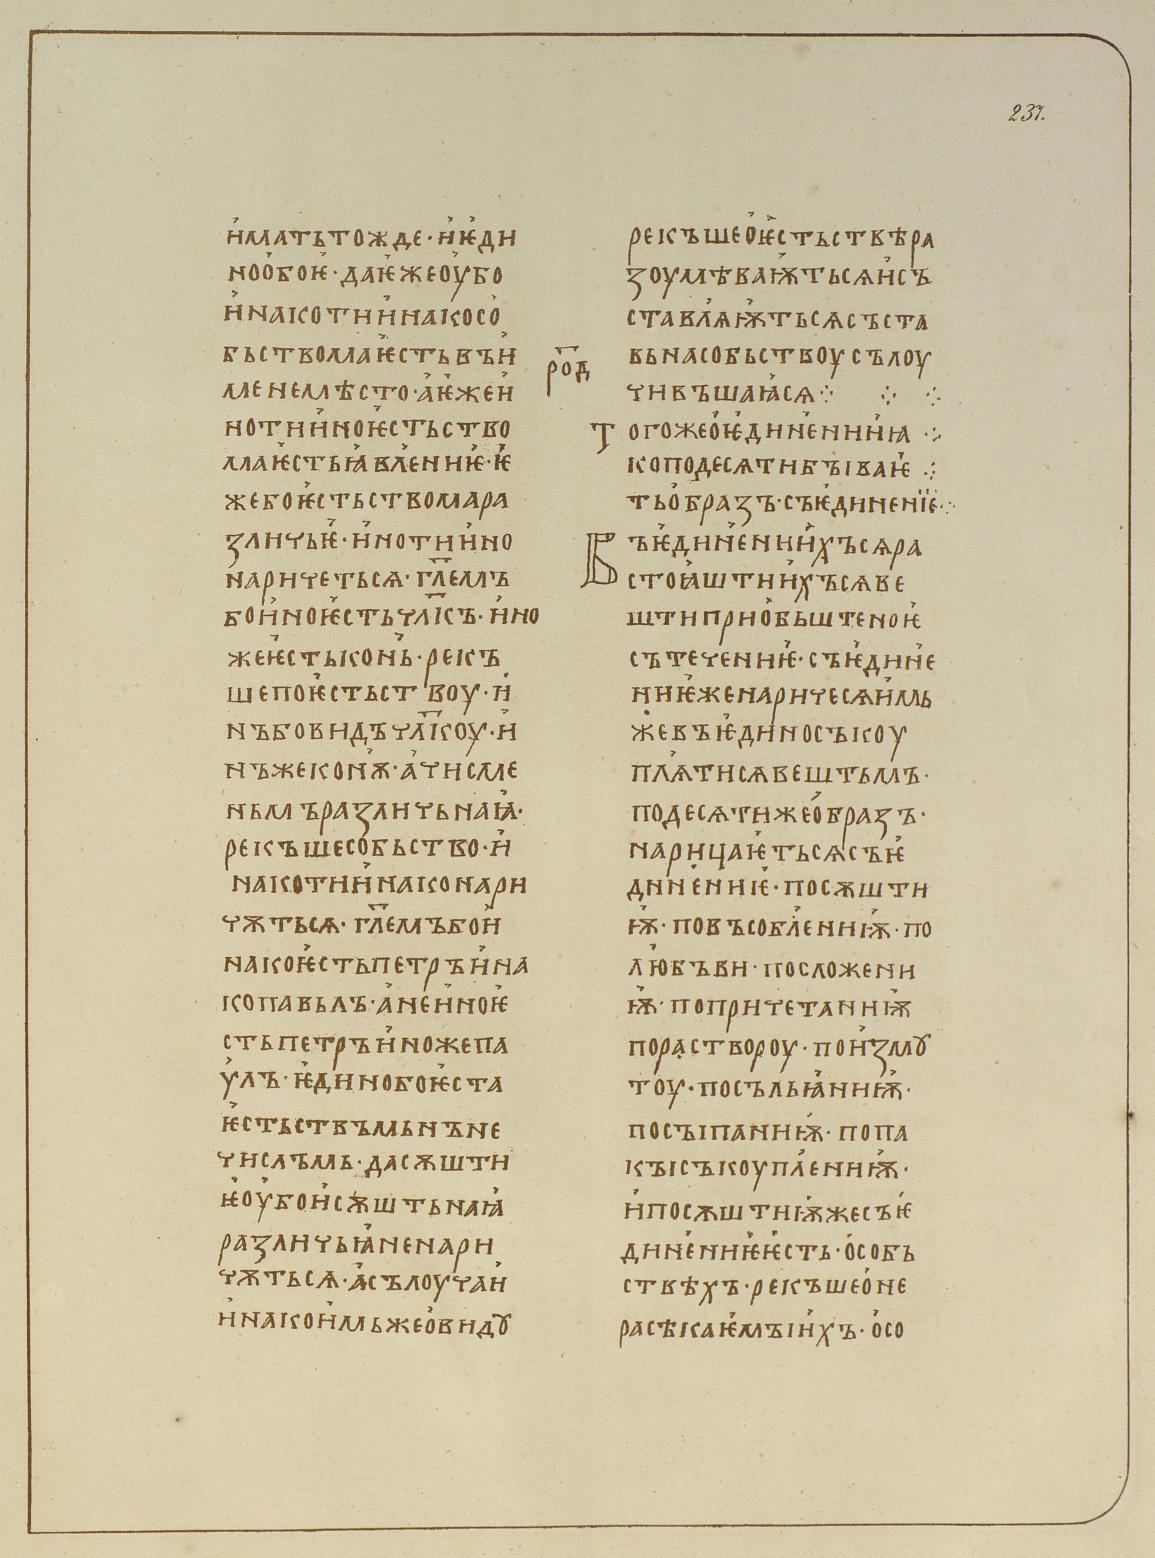 237.
и҆мать тожде · и҆ ѥ҆ди
но о҆боѥ · да ѥ҆же оу҆бо
и҆нако ти и҆нако со
бьствомь ѥ҆сть въ и҆
мене мѣсто · а҆ ѥ҆же и҆
но ти и҆но ѥ҆стьство
мь ѥ҆сть ꙗ҆вл҄ениѥ · ѥ҆
же бо ѥ҆стьствома ра
зличьѥ · и҆но ти и҆но
наричеться · гл҃емъ
бо и҆но ѥ҆сть чл҃къ · и҆но
же ѥ҆сть кон҄ь · рекъ
ше по ѥ҆стьствоу · и҆
нъ бо видъ чл҃коу · и҆
нъ же кон҄ѫ · а҆ чисме
ньмъ различьнаꙗ҆ ·
рекъше собьство · и҆
нако ти и҆нако нари
чѫться · гл҃емъ бо и҆
нако ѥ҆сть петръ и҆на
ко павьлъ · а҆ не и҆но ѥ҆
сть петръ и҆но же па
у҆лъ · ѥ҆дино бо ѥ҆ста
ѥ҆стьствъмь нъ не
числъмь · да сѫшти
ѥ҆ оу҆бо и҆ сѫштьнаꙗ҆
различьꙗ҆ не нари
чѫться · а҆ сълоучаи҆
и҆нако и҆мьже о҆ видꙋ
род҃
рекъше о҆ ѥ҆стьствѣ ра
зоумѣваѭ҆ться и҆ съ
ставл҄яѭ҆ться съста
вьна собьствоу сълоу
чивъшаꙗ҆ся ⁘ ⁘ ⁘
Того же о҆ ѥ҆дин҄ении ꙗ҆
ко по десяти бываѥ҆
ть о҆бразъ · съѥ҆динениѥ ⁘
Бъѥ҆дин҄ении҆хъся ра
стоꙗ҆штии҆хъся ве
шти прио҆бьштеноѥ҆
сътечениѥ · съѥ҆дин҄е
ниѥ҆ же наричеся и҆мь
же въ ѥ҆дино съкоу
пл҄ятися вештьмъ ·
по десяти же о҆бразъ ·
нарицаѥ҆ться съѥ҆
дин҄ениѥ · по сѫшти
ѭ҆ · по въсобл҄ениѭ · по
л҄юбъви · по сложени
ѭ҆ · по причетаниѭ
по растворoу · по и҆змꙋ
тоу · по сълиꙗ҆ниѭ҆ ·
по сыпаниѭ҆ · по па
кы съкоупл҄ениѭ҆ ·
и҆ по сѫштиѭ҆ же съѥ҆
дин҄ениѥ ѥ҆сть · о҆собь
ствѣхъ · рекъше о҆ не
расѣкаѥ҆мыи҆хъ · о҆со